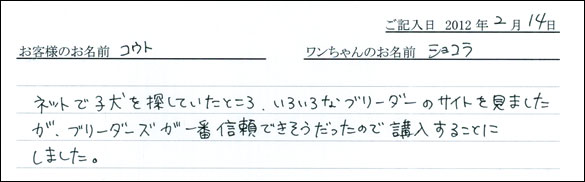 ご記入日 2012年2月14日
お客様のお名前 コウト ワンちゃんのお名前 ショコラ
ネットで子犬を探していたところ、いろいろなブリーダーのサイトを見ました
が、ブリーダーズが一番信頼できそうだったので講入することに
しました。